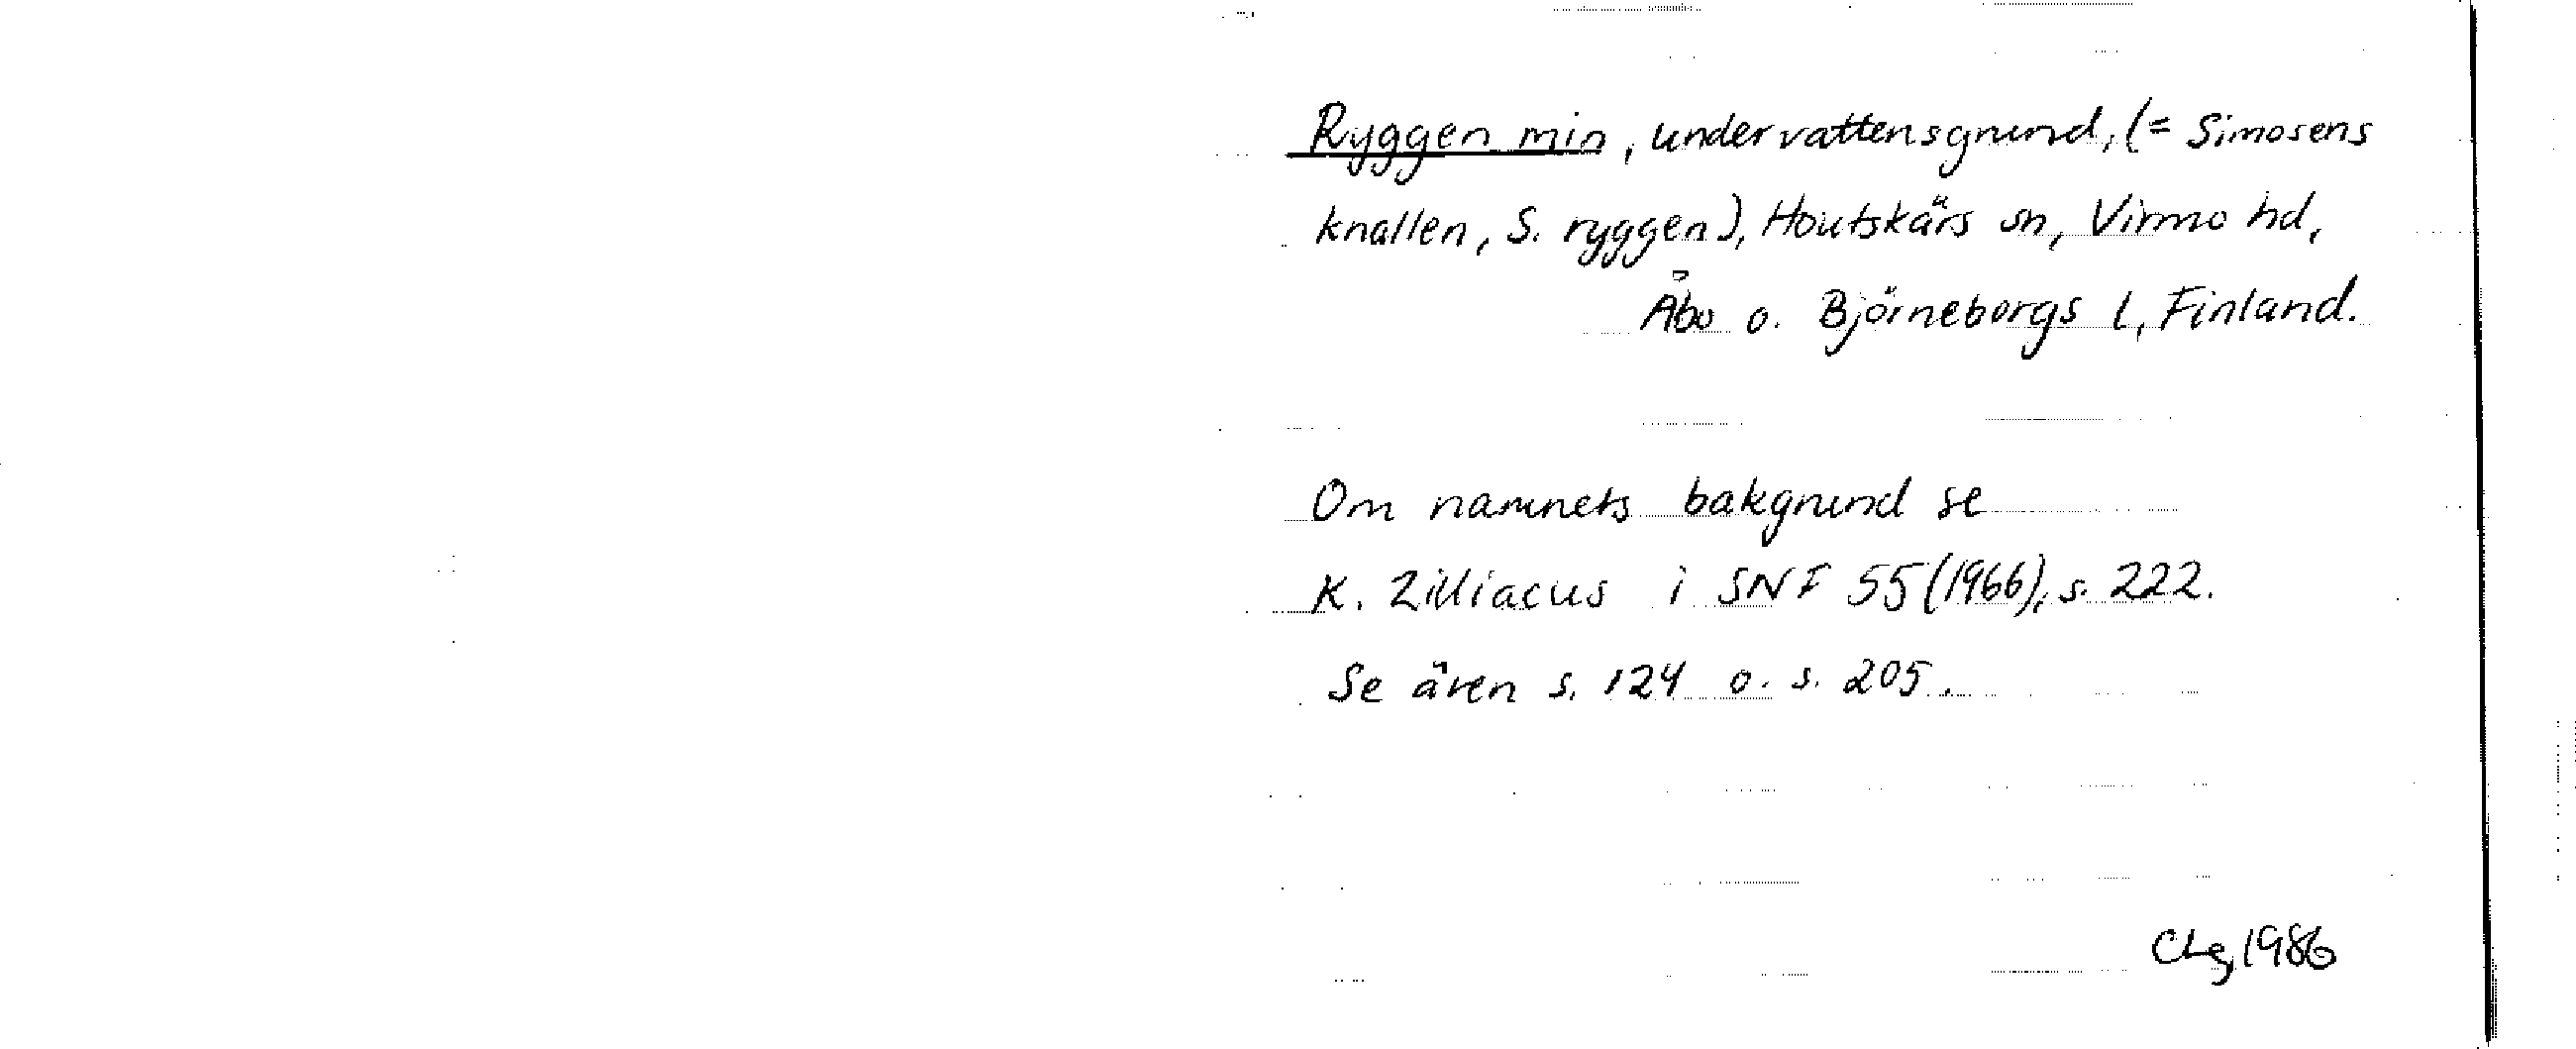 Ryggen min, undervattensgrund, (= Simosens
knallen, S. ryggen), Houtskärs sn, Virmo hd,
Åbo o. Björneborgs l, Finland.
Om namnets bakgrund se
K. Zilliacus i SNF 55 (1966), s. 222.
Se även s. 124 o. s. 205.
CLg, 1986